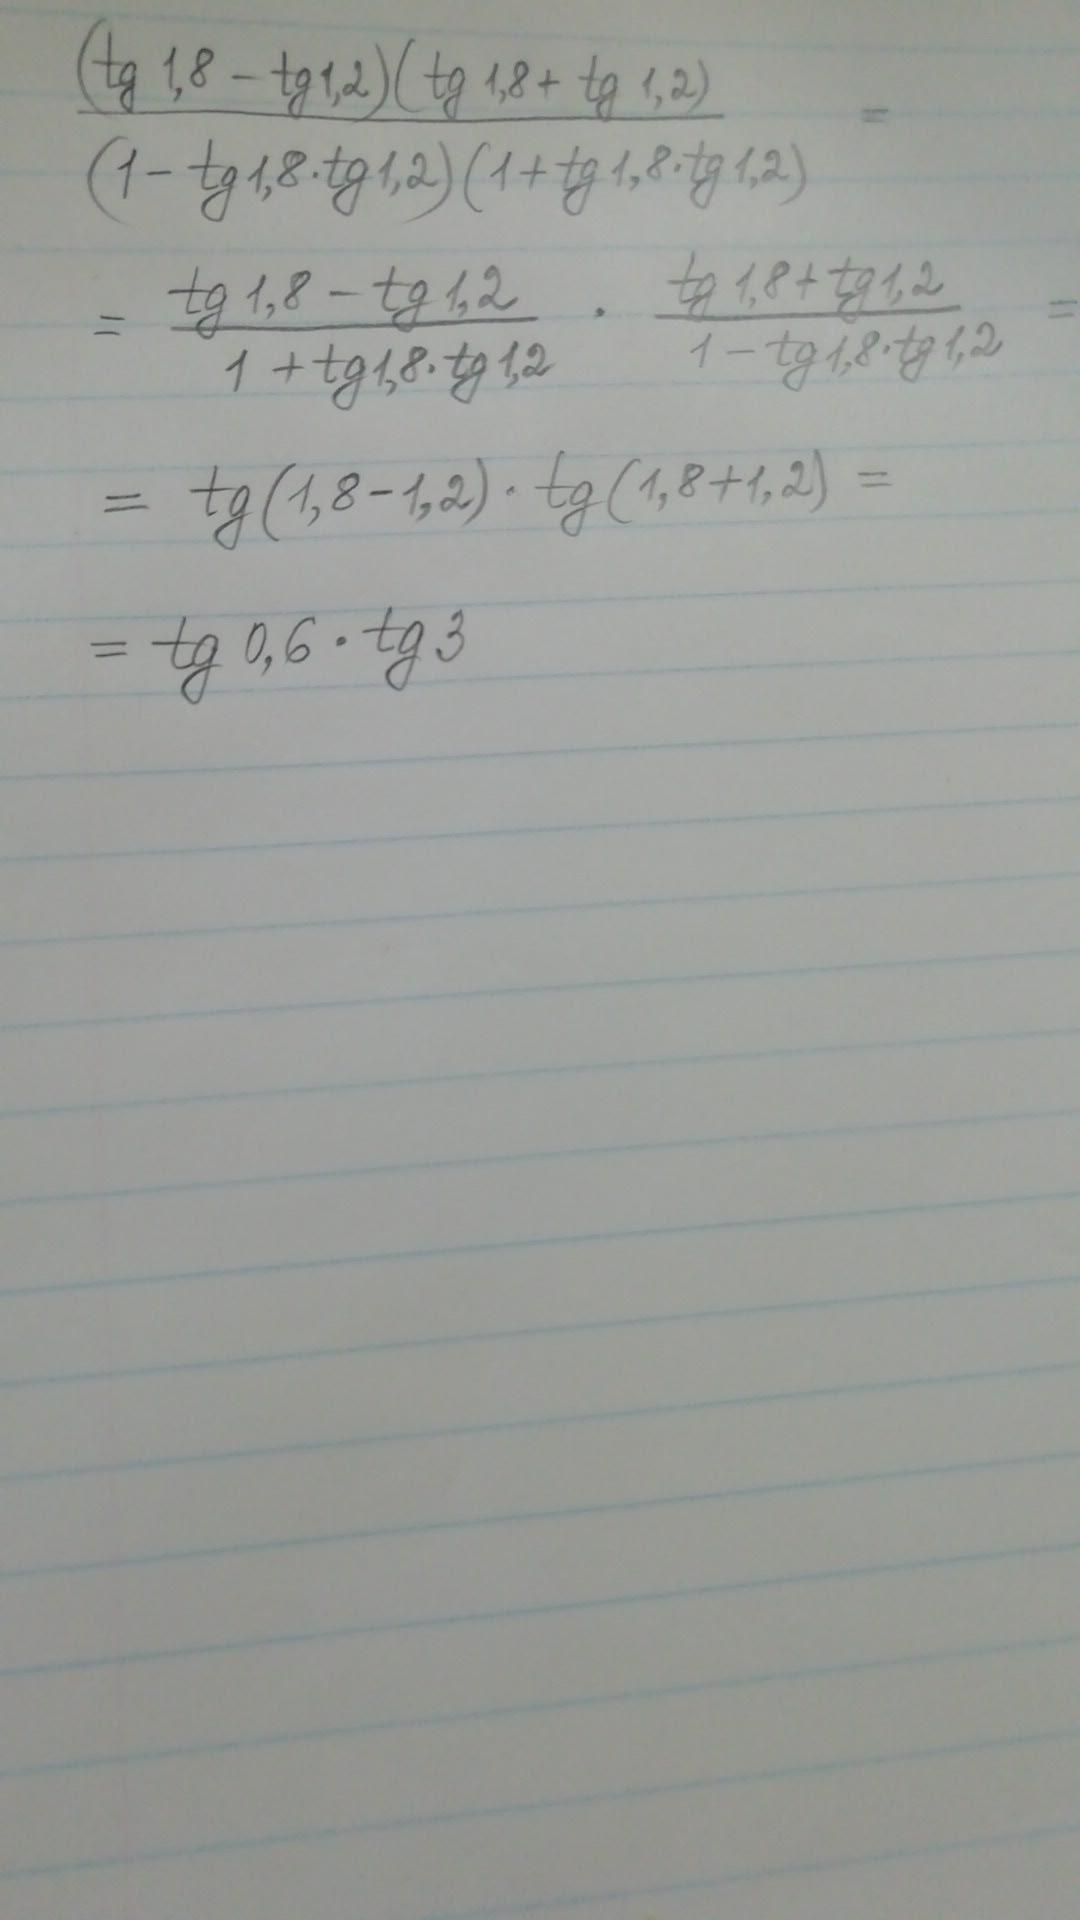 (tg 1,8 - tg 1,2)(tg 1,8 + tg 1,2)
=
(1 - tg 1,8 · tg 1,2)(1 + tg 1,8 · tg 1,2)
tg 1,8 - tg 1,2 tg 1,8 + tg 1,2
= · =
1 + tg 1,8 · tg 1,2 1 - tg 1,8 · tg 1,2
= tg (1,8 - 1,2) · tg (1,8 + 1,2) =
= tg 0,6 · tg 3